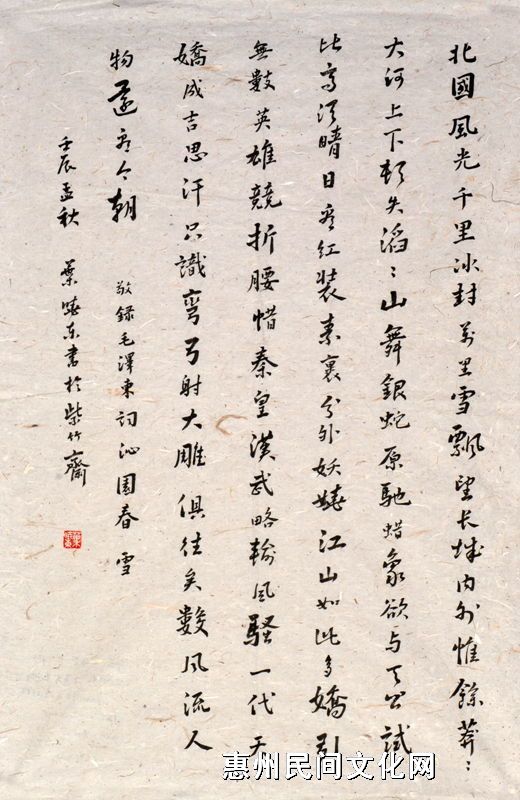 北國風光千里冰封萬里雪飄望長城内外惟餘莽〻
大河上下頓失滔〻山舞銀蛇原馳蜡象欲與天公試
比高須晴日看紅裝素裹分外妖嬈江山如此多嬌引
無數英雄競折腰惜秦皇漢武略輸風騷一代天
嬌成吉思汗只識彎弓射大雕俱往矣數風流人
物還看今朝 敬録毛澤東詞沁園春 雪
壬辰孟秋 葉東書於紫竹齋
惠州民间文化网